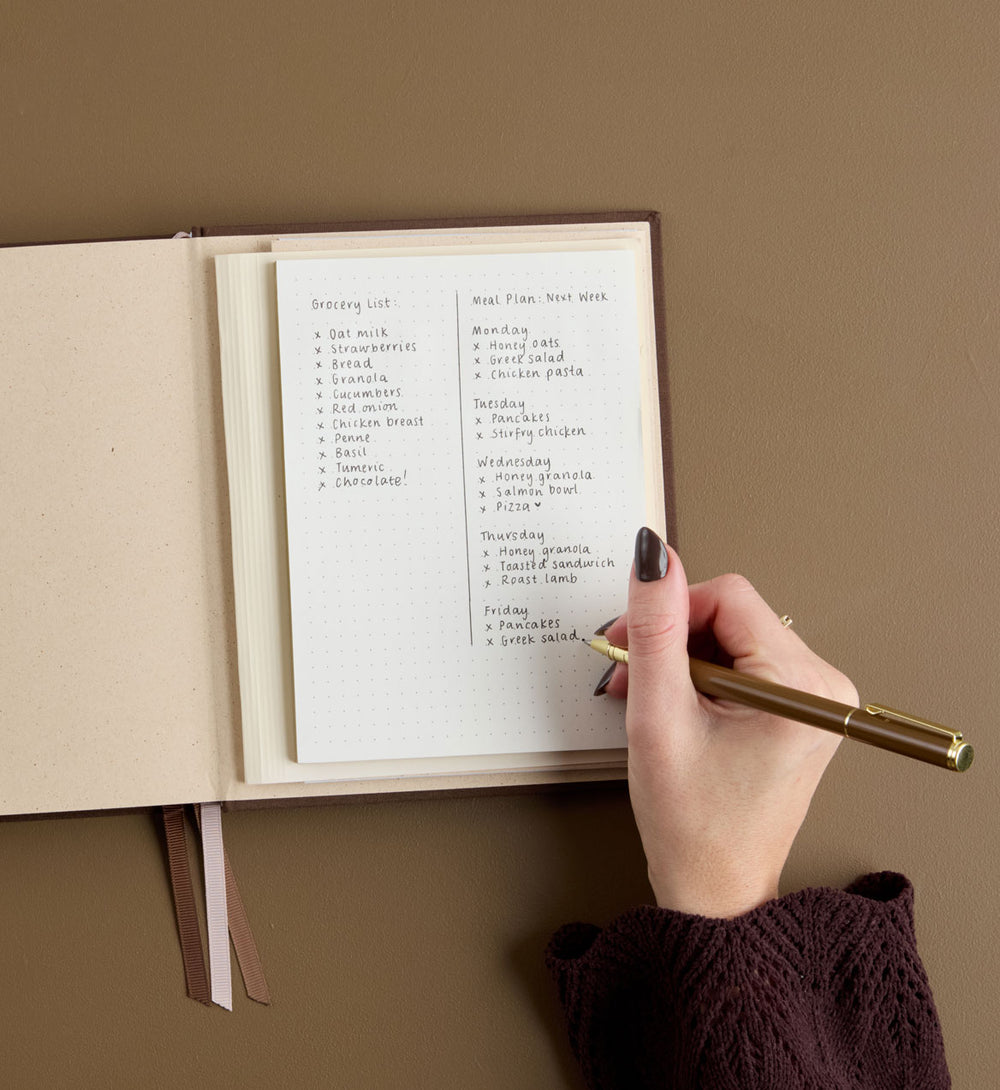 Grocery List:
x Oat milk
x Strawberries
x Bread
x Granola
x Cucumbers
x Red onion
x Chicken breast
x Penne
x Basil
x Tumeric
x Chocolate!
Meal Plan: Next Week
Monday
x Honey oats
x Greek salad
x Chicken pasta
Tuesday
x Pancakes
x Stirfry chicken
Wednesday
x Honey granola
x Salmon bowl
x Pizza ♥
Thursday
x Honey granola
x Toasted sandwich
x Roast lamb
Friday
x Pancakes
x Greek salad